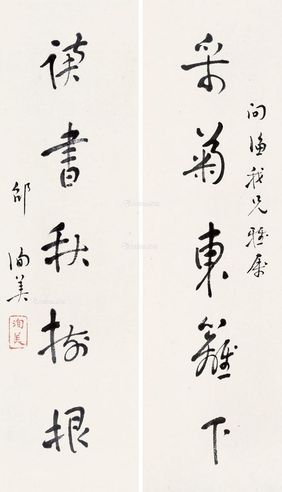 采菊東籬下
問漁我兄雅屬
讀書秋樹根
邵洵美
洵美